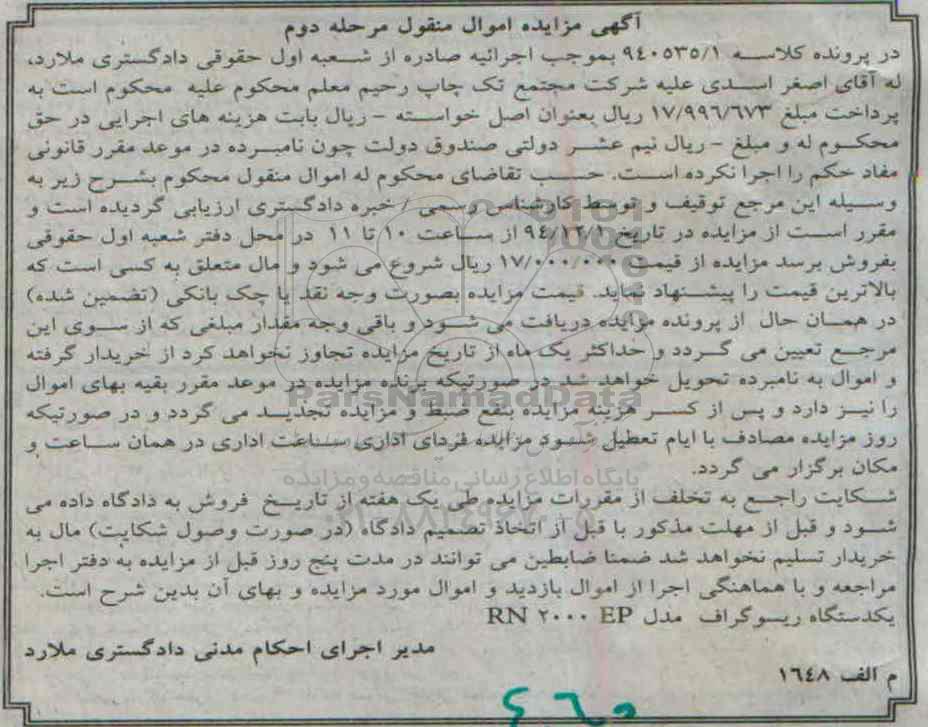 آگهی مزایده اموال منقول مرحله دوم
در پرونده کلاسه ۹٤۰٥۳٥/۱ بموجب اجرائیه صادره از شعبه اول حقوقی دادگستری ملارد،
له آقای اصغر اسدی علیه شرکت مجتمع تک چاپ رحیم معلم محکوم علیه محکوم است به
پرداخت مبلغ ۱۷/۹۹٦/٦۷۳ ریال بعنوان اصل خواسته - ریال بابت هزینه های اجرایی در حق
محکوم له و مبلغ - ریال نیم عشر دولتی صندوق دولت چون نامبرده در موعد مقرر قانونی
مفاد حکم را اجرا نکرده است. حسب تقاضای محکوم له اموال منقول محکوم بشرح زیر به
وسیله این مرجع توقیف و توسط کارشناس رسمی / خبره دادگستری ارزیابی گردیده است و
مقرر است از مزایده در تاریخ ۹٤/۱۲/۱ از ساعت ۱۰ تا ۱۱ در محل دفتر شعبه اول حقوقی
بفروش برسد مزایده از قیمت ۱۷/۰۰۰/۰۰۰ ریال شروع می شود و مال متعلق به کسی است که
بالاترین قیمت را پیشنهاد نماید. قیمت مزایده بصورت وجه نقد یا چک بانکی (تضمین شده)
در همان حال از پرونده مزایده دریافت می شود و باقی وجه مقدار مبلغی که از سوی این
مرجع تعیین می گردد و حداکثر یک ماه از تاریخ مزایده تجاوز نخواهد کرد از خریدار گرفته
و اموال به نامبرده تحویل خواهد شد در صورتیکه برنده مزایده در موعد مقرر بقیه بهای اموال
ParsNamadData
را نیز دارد و پس از کسر هزینه مزایده بنفع ضبط و مزایده تجدید می گردد و در صورتیکه
روز مزایده مصادف با ایام تعطیل شود مزایده فردای اداری ساعت اداری در همان ساعت و
مکان برگزار می گردد.
پایگاه اطلاع رسانی مناقصه و مزایده
شکایت راجع به تخلف از مقررات مزایده طی یک هفته از تاریخ فروش به دادگاه داده می
شود و قبل از مهلت مذکور با قبل از اتخاذ تصمیم دادگاه (در صورت وصول شکایت) مال به
خریدار تسلیم نخواهد شد ضمنا ضابطین می توانند در مدت پنج روز قبل از مزایده به دفتر اجرا
مراجعه و با هماهنگی اجرا از اموال بازدید و اموال مورد مزایده و بهای آن بدین شرح است.
یکدستگاه ریسوگراف مدل RN ۲۰۰۰ EP
مدیر اجرای احکام مدنی دادگستری ملارد
م الف ۱٦٤۸